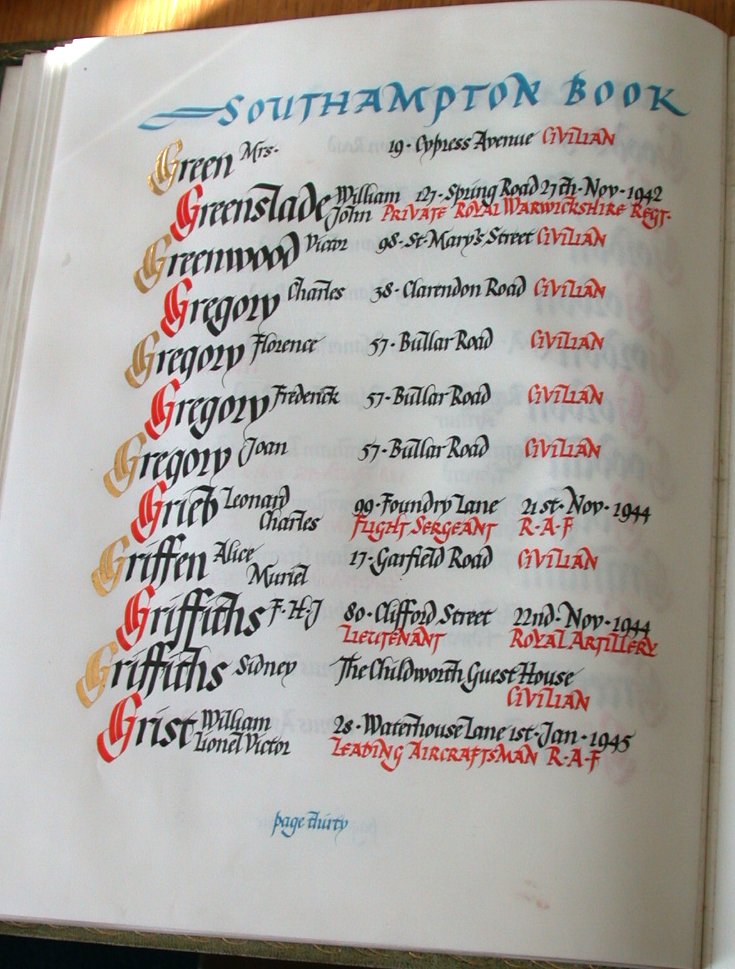 SOUTHAMPTON BOOK
Green Mrs. 19·Cypress Avenue CIVILIAN
Greenslade William 127·Spring Road 27th·Nov·1942
John PRIVATE ROYAL WARWICKSHIRE REGT·
Greenwood Victor 98·St·Mary's Street CIVILIAN
Gregory Charles 38·Clarendon Road CIVILIAN
Gregory Florence 57·Bullar Road CIVILIAN
Gregory Frederick 57·Bullar Road CIVILIAN
Gregory Joan 57·Bullar Road CIVILIAN
Grieb Leonard 99·Foundry Lane 21st·Nov·1944
Charles FLIGHT SERGEANT R·A·F
Griffen Alice 17·Garfield Road CIVILIAN
Muriel
Griffiths F·H·J 80·Clifford Street 22nd·Nov·1944
LIEUTENANT ROYAL ARTILLERY
Griffiths Sidney The Childworth Guest House
CIVILIAN
Grist William 28·Waterhouse Lane 1st·Jan·1945
Lionel Victor LEADING AIRCRAFTSMAN R·A·F
page thirty